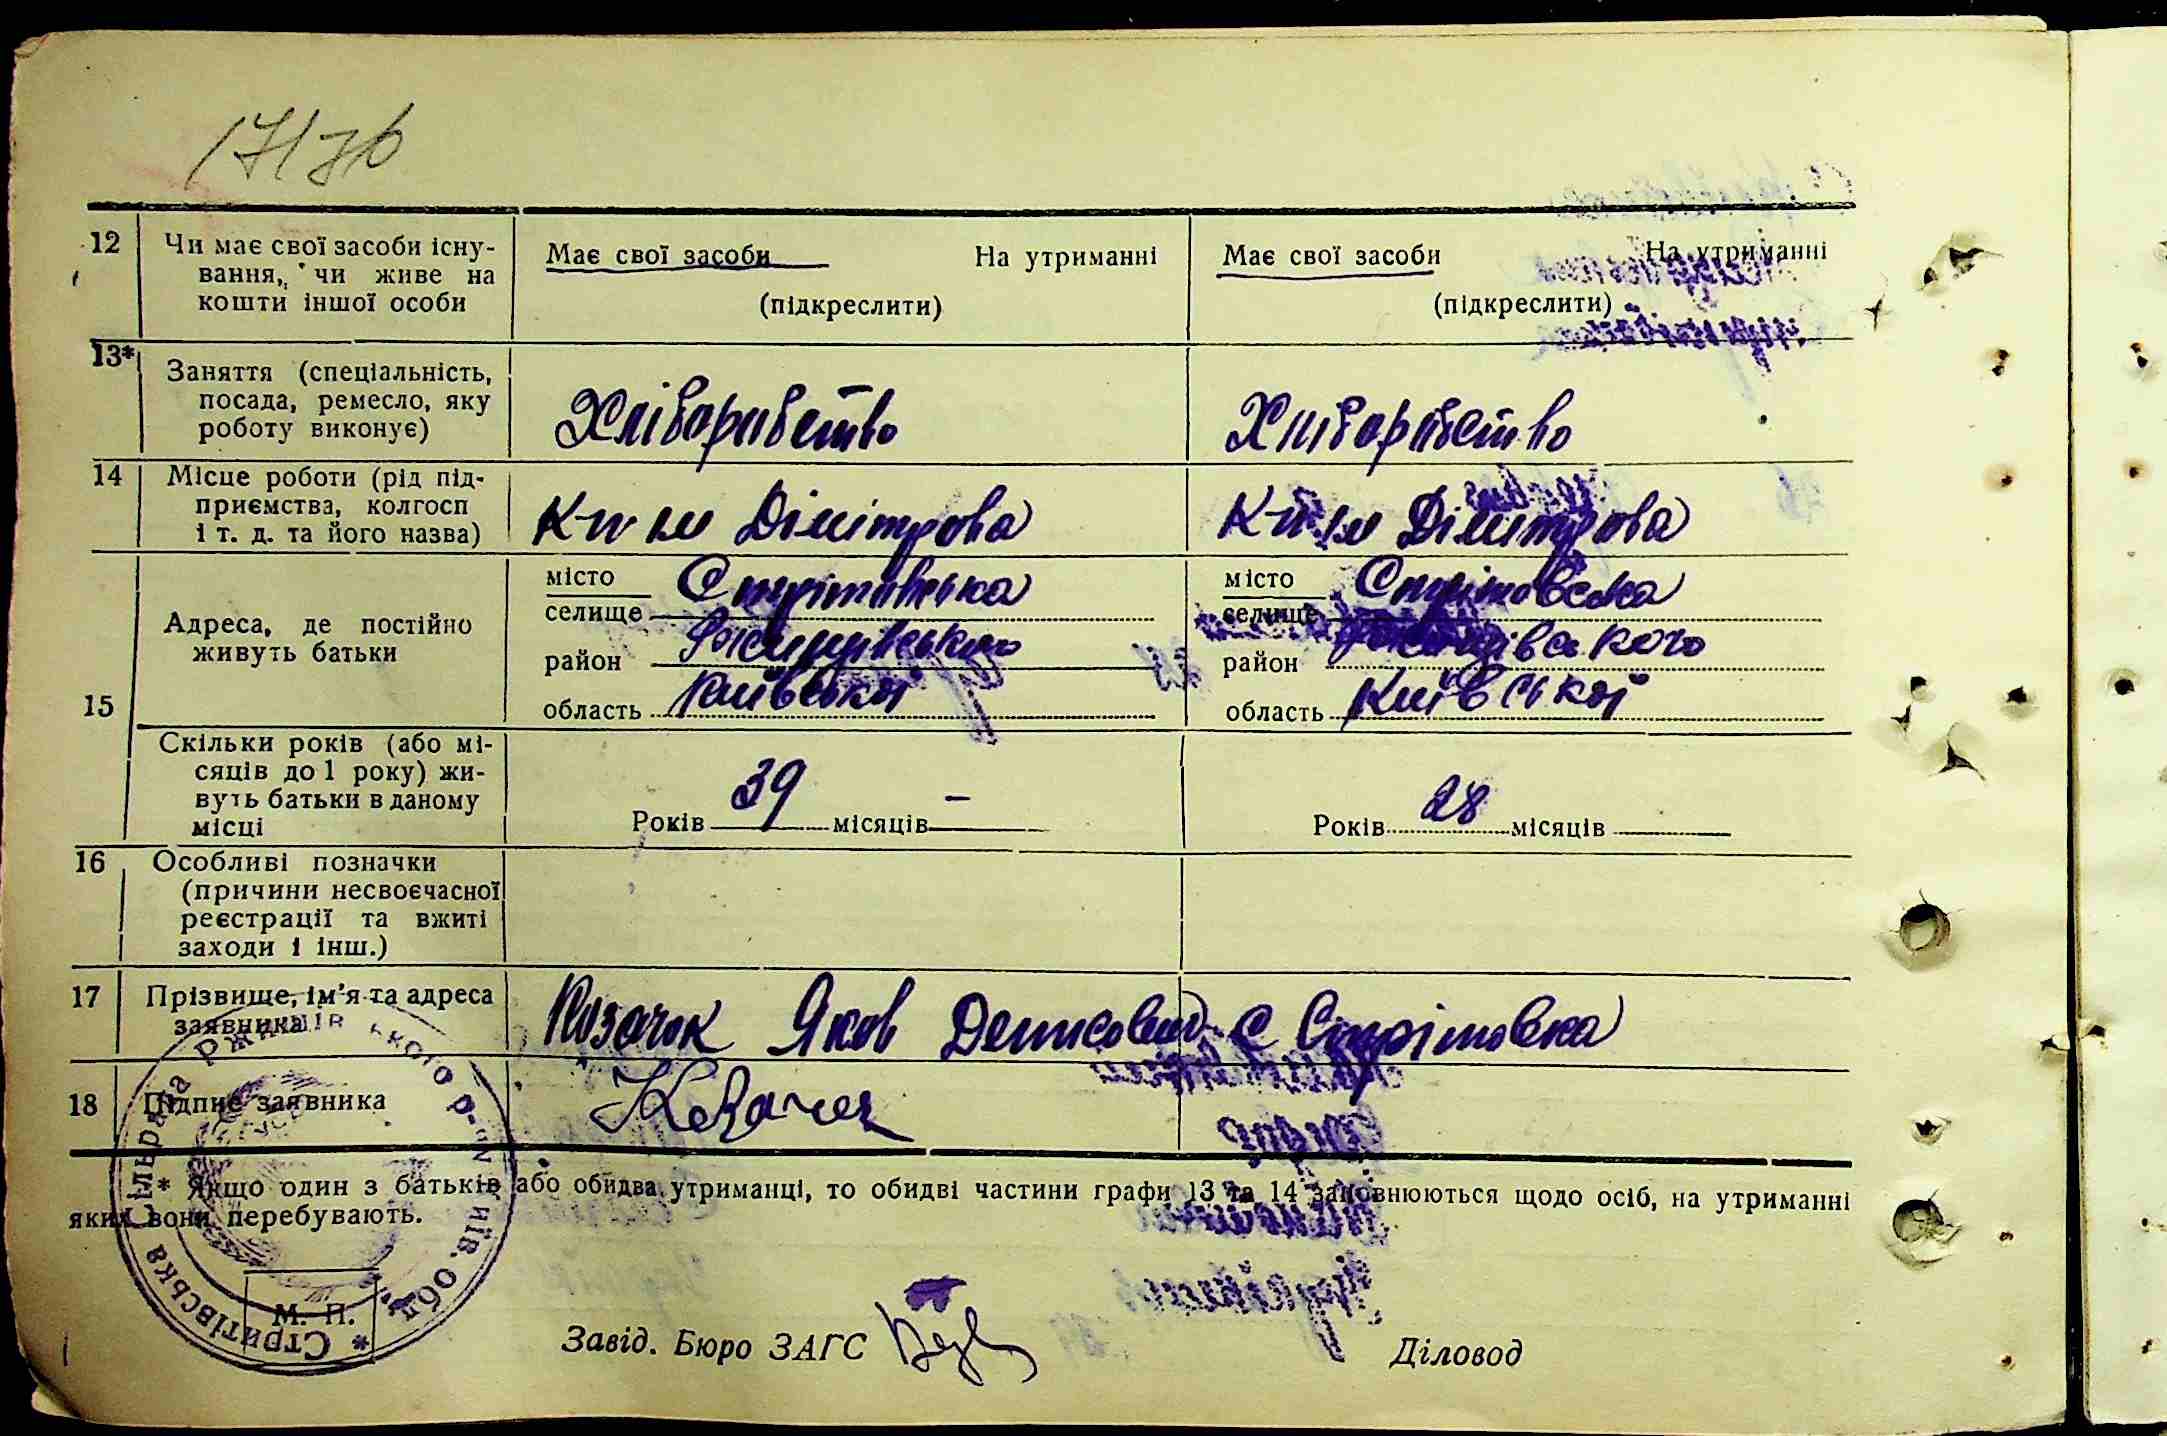 12 Чи має свої засоби існу-
вання, чи живе на
кошти іншої особи
Має свої засоби На утриманні
(підкреслити)
Має свої засоби На утриманні
(підкреслити)
13* Заняття (спеціальність,
посада, ремесло, яку
роботу виконує)
Хліборобство
Хліборобство
14 Місце роботи (рід під-
приємства, колгосп
і т. д. та його назва)
К-п ім Дімітрова
К-п ім Дімітрова
15
Адреса, де постійно
живуть батьки
місто
селище Стрітовська
район Ржищівського
область Київської
місто
селище Стрітовська
район Ржищівського
область Київської
Скільки років (або мі-
сяців до 1 року) жи-
вуть батьки в даному
місці
Років 39 місяців –
Років 28 місяців
16 Особливі позначки
(причини несвоєчасної
реєстрації та вжиті
заходи і інш.)
17 Прізвище, ім'я та адреса
заявника
Козачок Яков Денисович с Стрітовка
18 Підпис заявника
* Якщо один з батьків або обидва утриманці, то обидві частини графи 13 та 14 заповнюються щодо осіб, на утриманні
яких вони перебувають.
* Стритівська сільрада Ржищівського р-ну Київ. обл.
М. П.
Завід. Бюро ЗАГС
Діловод